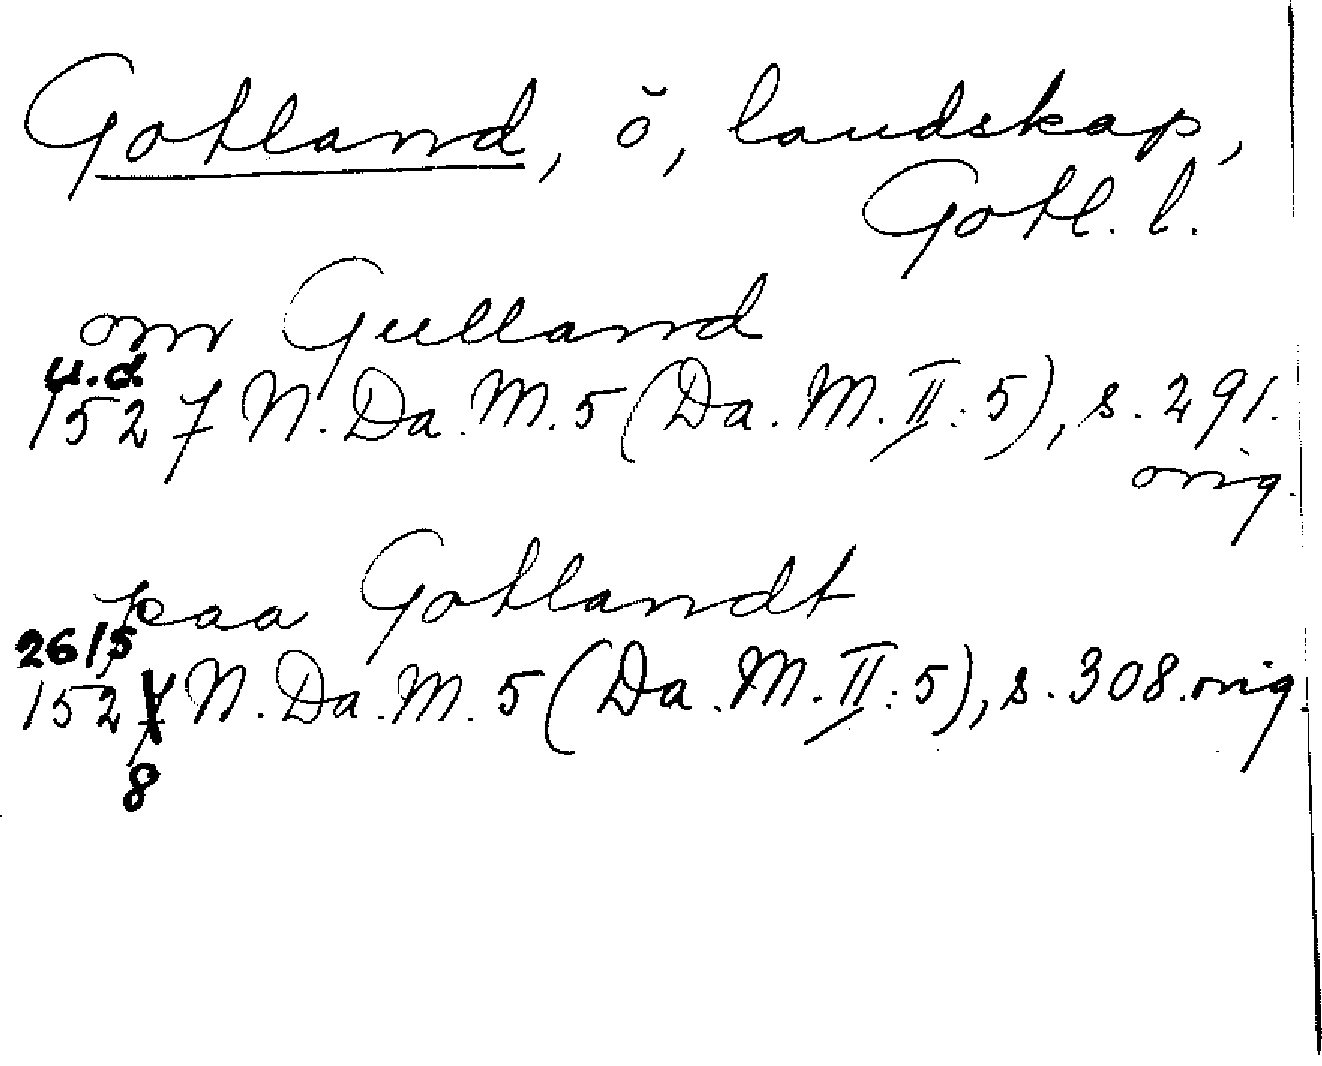 Gotland, ö, landskap,
Gotl. l.
om Gulland
u.d.
1527 N. Da. M. 5 (Da. M. II: 5), s. 291.
orig.
paa Gotlandt
26/5
1527 N. Da. M. 5 (Da. M. II: 5), s. 308. orig.
8